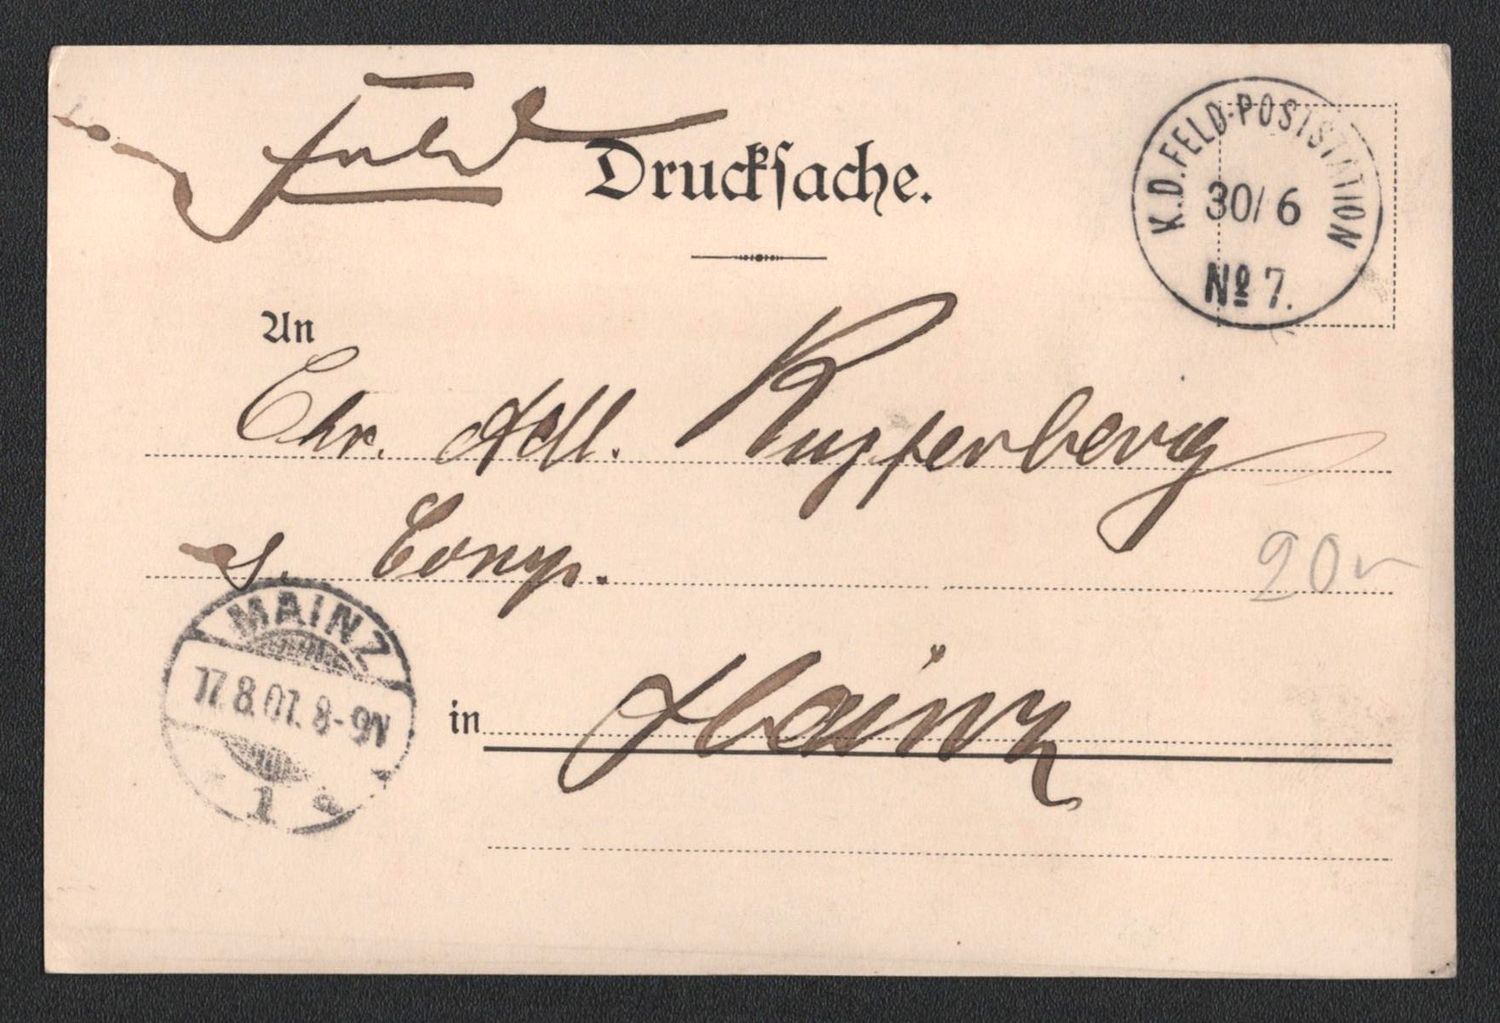 Feld
Drucksache.
K.D. FELD-POSTSTATION
30/6
No 7.
An
Chr. Adt. Kupferberg
s. Comp.
20
MAINZ
17.8.01. 8-9N
1
in Mainz